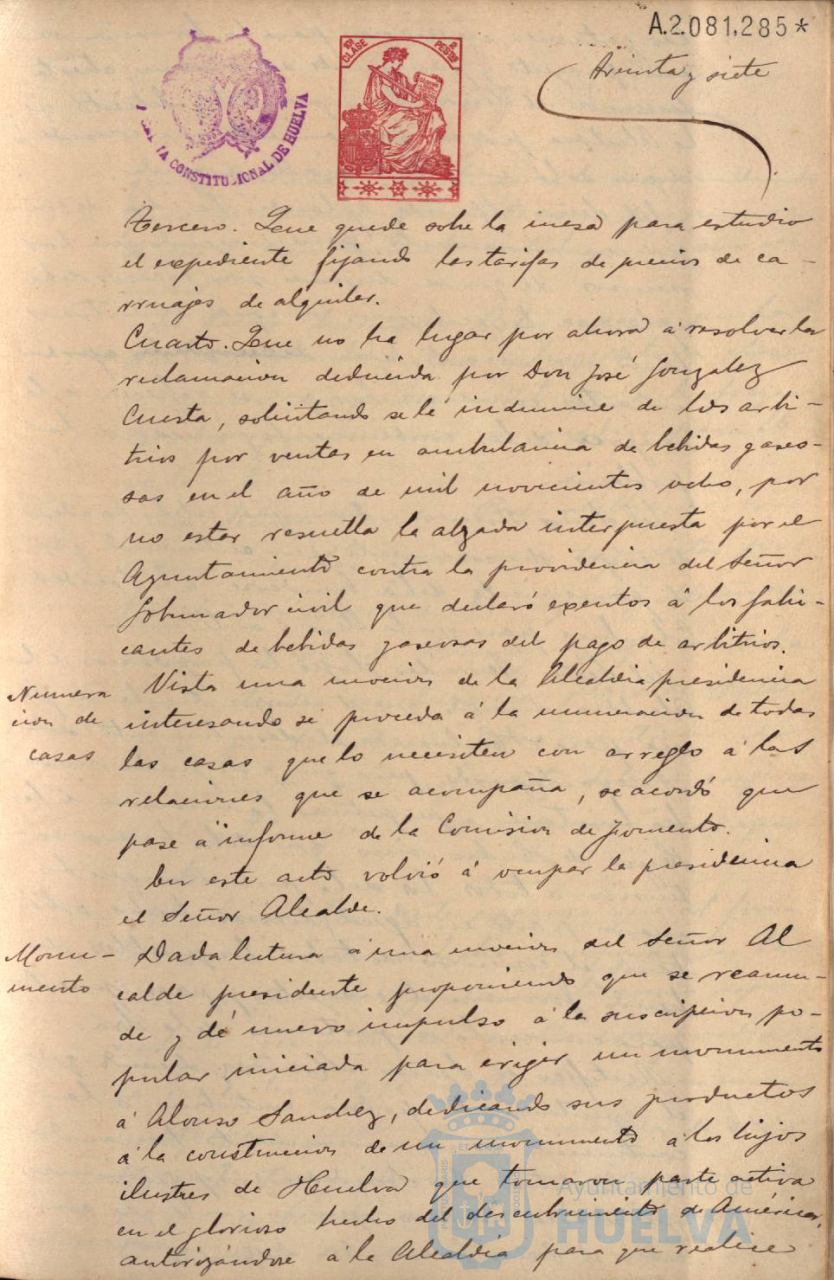 A.2.081.285*
Treinta y siete
10ª CLASE
2 PESETAS
CONSTITUCIONAL DE HUELVA
Tercero. Que quede sobre la mesa para estudio
el expediente fijando las tarifas de precios de ca-
rruajes de alquiler.
Cuarto. Que no ha lugar por ahora á resolver la
reclamacion deducida por Don José Gonzalez
Cuesta, solicitando se le indemnice de los arbi-
trios por ventas en ambulancia de bebidas gaseo-
sas en el año de mil novecientos ocho, por
no estar resuelta la alzada interpuesta por el
Ayuntamiento contra la providencia del Señor
Gobernador civil que declaró exentos á los fabri-
cantes de bebidas gaseosas del pago de arbitrios.
Numera
cion de
casas
Vista una mocion de la Alcaldia presidencia
interesando se proceda á la numeracion de todas
las casas que lo necesiten con arreglo á las
relaciones que se acompaña, se acordó que
pase á informe de la Comision de Fomento.
En este acto volvió á ocupar la presidencia
el Señor Alcalde.
Monu-
mento
Dada lectura á una mocion del Señor Al
calde presidente proponiendo que se reanu-
de y dé nuevo impulso á la suscripcion po-
pular iniciada para erigir un monumento
á Alonso Sanchez, dedicando sus productos
á la construccion de un monumento á los hijos
ilustres de Huelva que tomaron parte activa
en el glorioso hecho del descubrimiento de América,
autorizándose á la Alcaldia para que realice
Ayuntamiento de
HUELVA